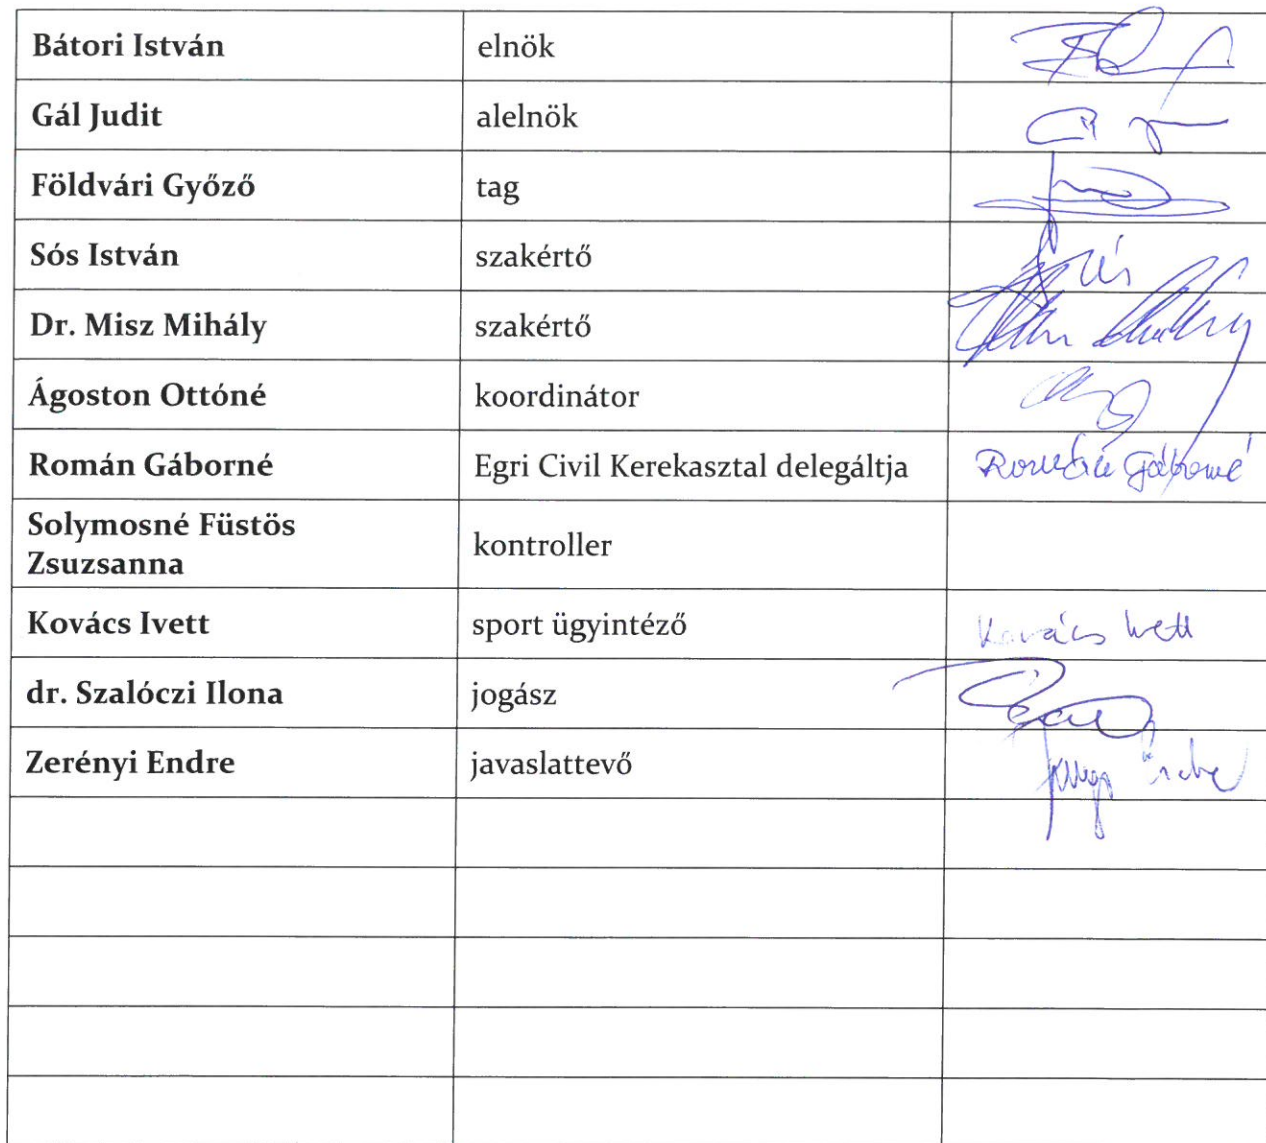 Bátori István elnök
Gál Judit alelnök
Földvári Győző tag
Sós István szakértő
Dr. Misz Mihály szakértő
Ágoston Ottóné koordinátor
Román Gáborné Egri Civil Kerekasztal delegáltja Román Gáborné
Solymosné Füstös
Zsuzsanna kontroller
Kovács Ivett sport ügyintéző Kovács Ivett
dr. Szalóczi Ilona jogász
Zerényi Endre javaslattevő